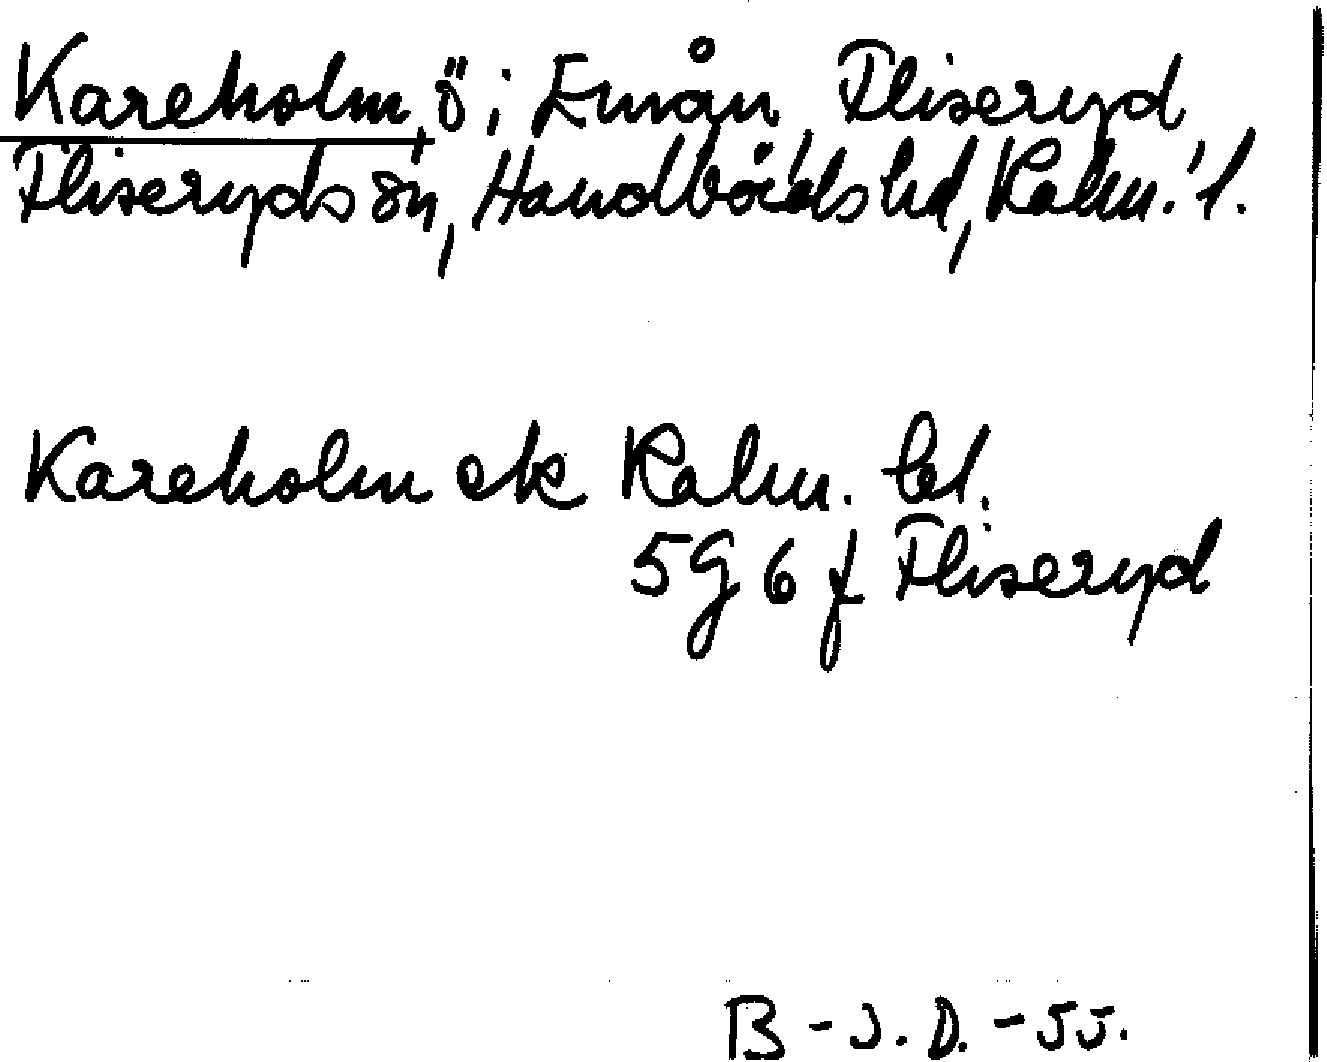 Kareholm, ö i Emån Fliseryd
Fliseryds sn, Handbörds hd, Kalm. l.
Kareholm ek Kalm. bl.
5 G 6 f Fliseryd
B - J. D. - 55.